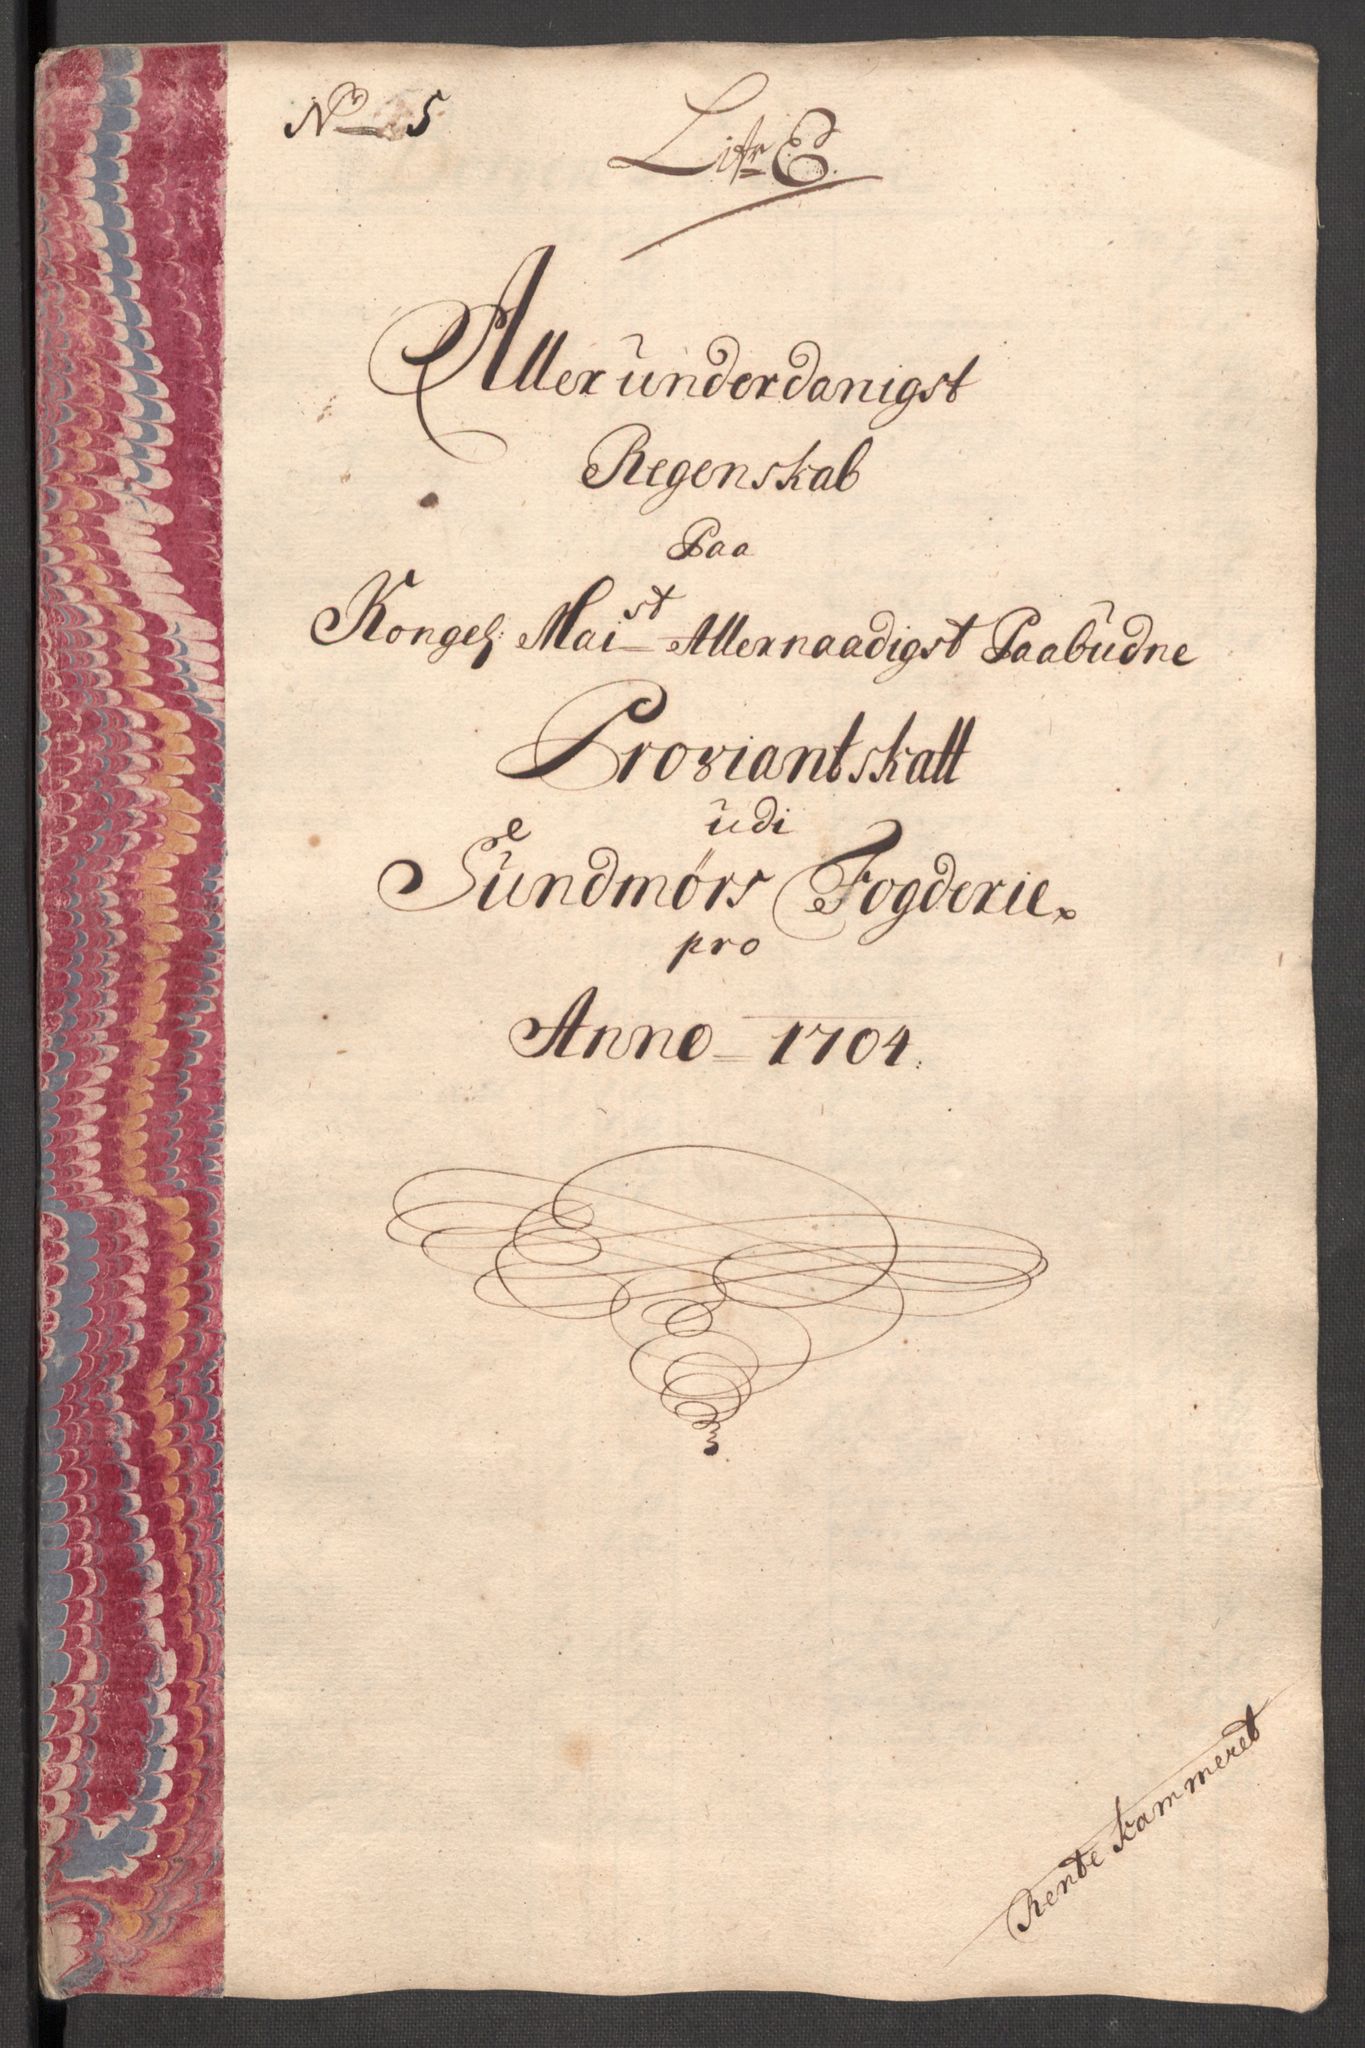 No 5
Litr E.
Allerunderdanigst
Regenskab
Paa
Kongel: Maist Allernaadigst Paabudne
Proviantskatt
udi
Sundmørs Fogderie
pro
Anno 1704.
Rente kammeret